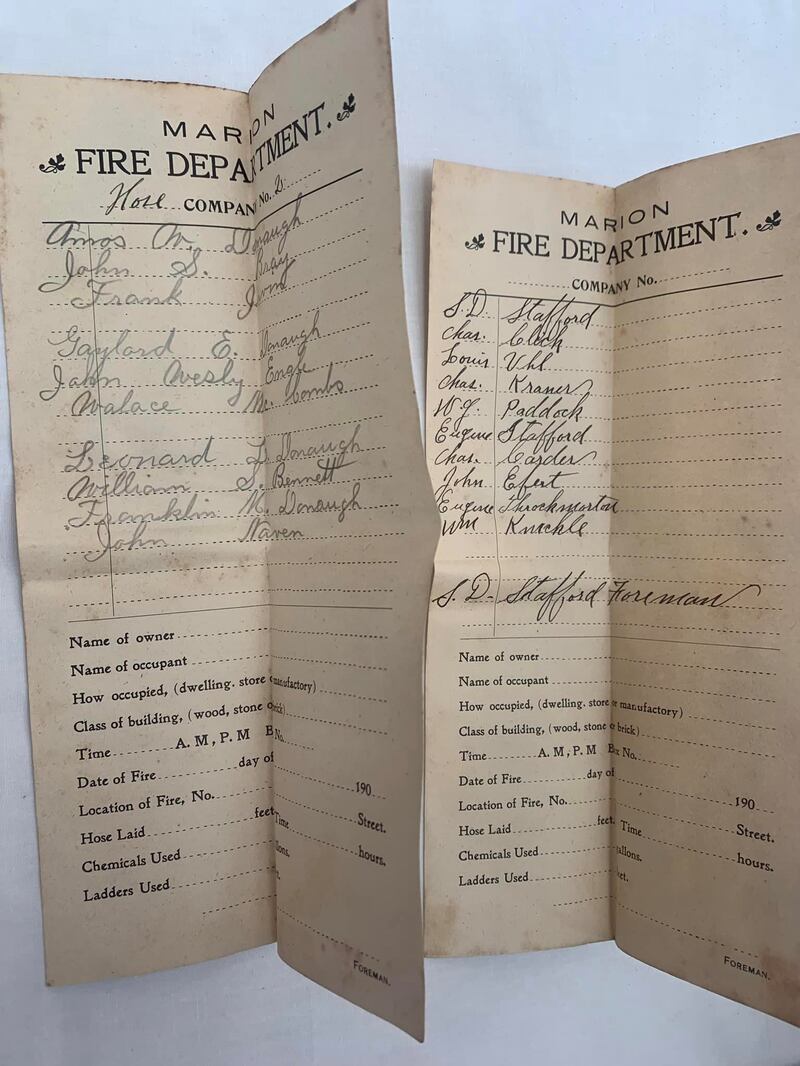 MARION
FIRE DEPARTMENT.
Hose COMPANY No. 2
Amos W. Donaugh
John S. Bray
Frank
Gaylord E. Donaugh
John Wesly Engle
Walace Mc. Combs
Leonard D. Donaugh
William S. Bennett
Franklin M. Donaugh
John Naven
Name of owner
Name of occupant
How occupied, (dwelling. store manufactory)
Class of building, (wood, stone brick)
Time A. M, P. M No.
Date of Fire day of 190
Location of Fire, No. Street.
Hose Laid feet Time hours.
Chemicals Used
Ladders Used
FOREMAN.
MARION
FIRE DEPARTMENT.
COMPANY No.
S. D. Stafford
Chas. Click
Louis Uhl
Chas. Kraner
W. J. Paddock
Eugene Stafford
Chas. Carder
John Efert
Eugene Throckmorton
Wm Knichle
S. D. Stafford Foreman
Name of owner
Name of occupant
How occupied, (dwelling. store or manufactory)
Class of building, (wood, stone brick)
Time A. M, P. M Box No.
Date of Fire day of 190
Location of Fire, No. Street.
Hose Laid feet. Time hours.
Chemicals Used gallons.
Ladders Used
FOREMAN.